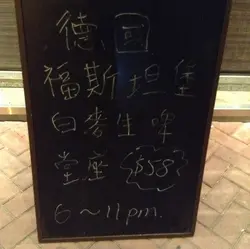 德國
福斯坦堡
白麥生啤
堂座 $58
6~11pm.